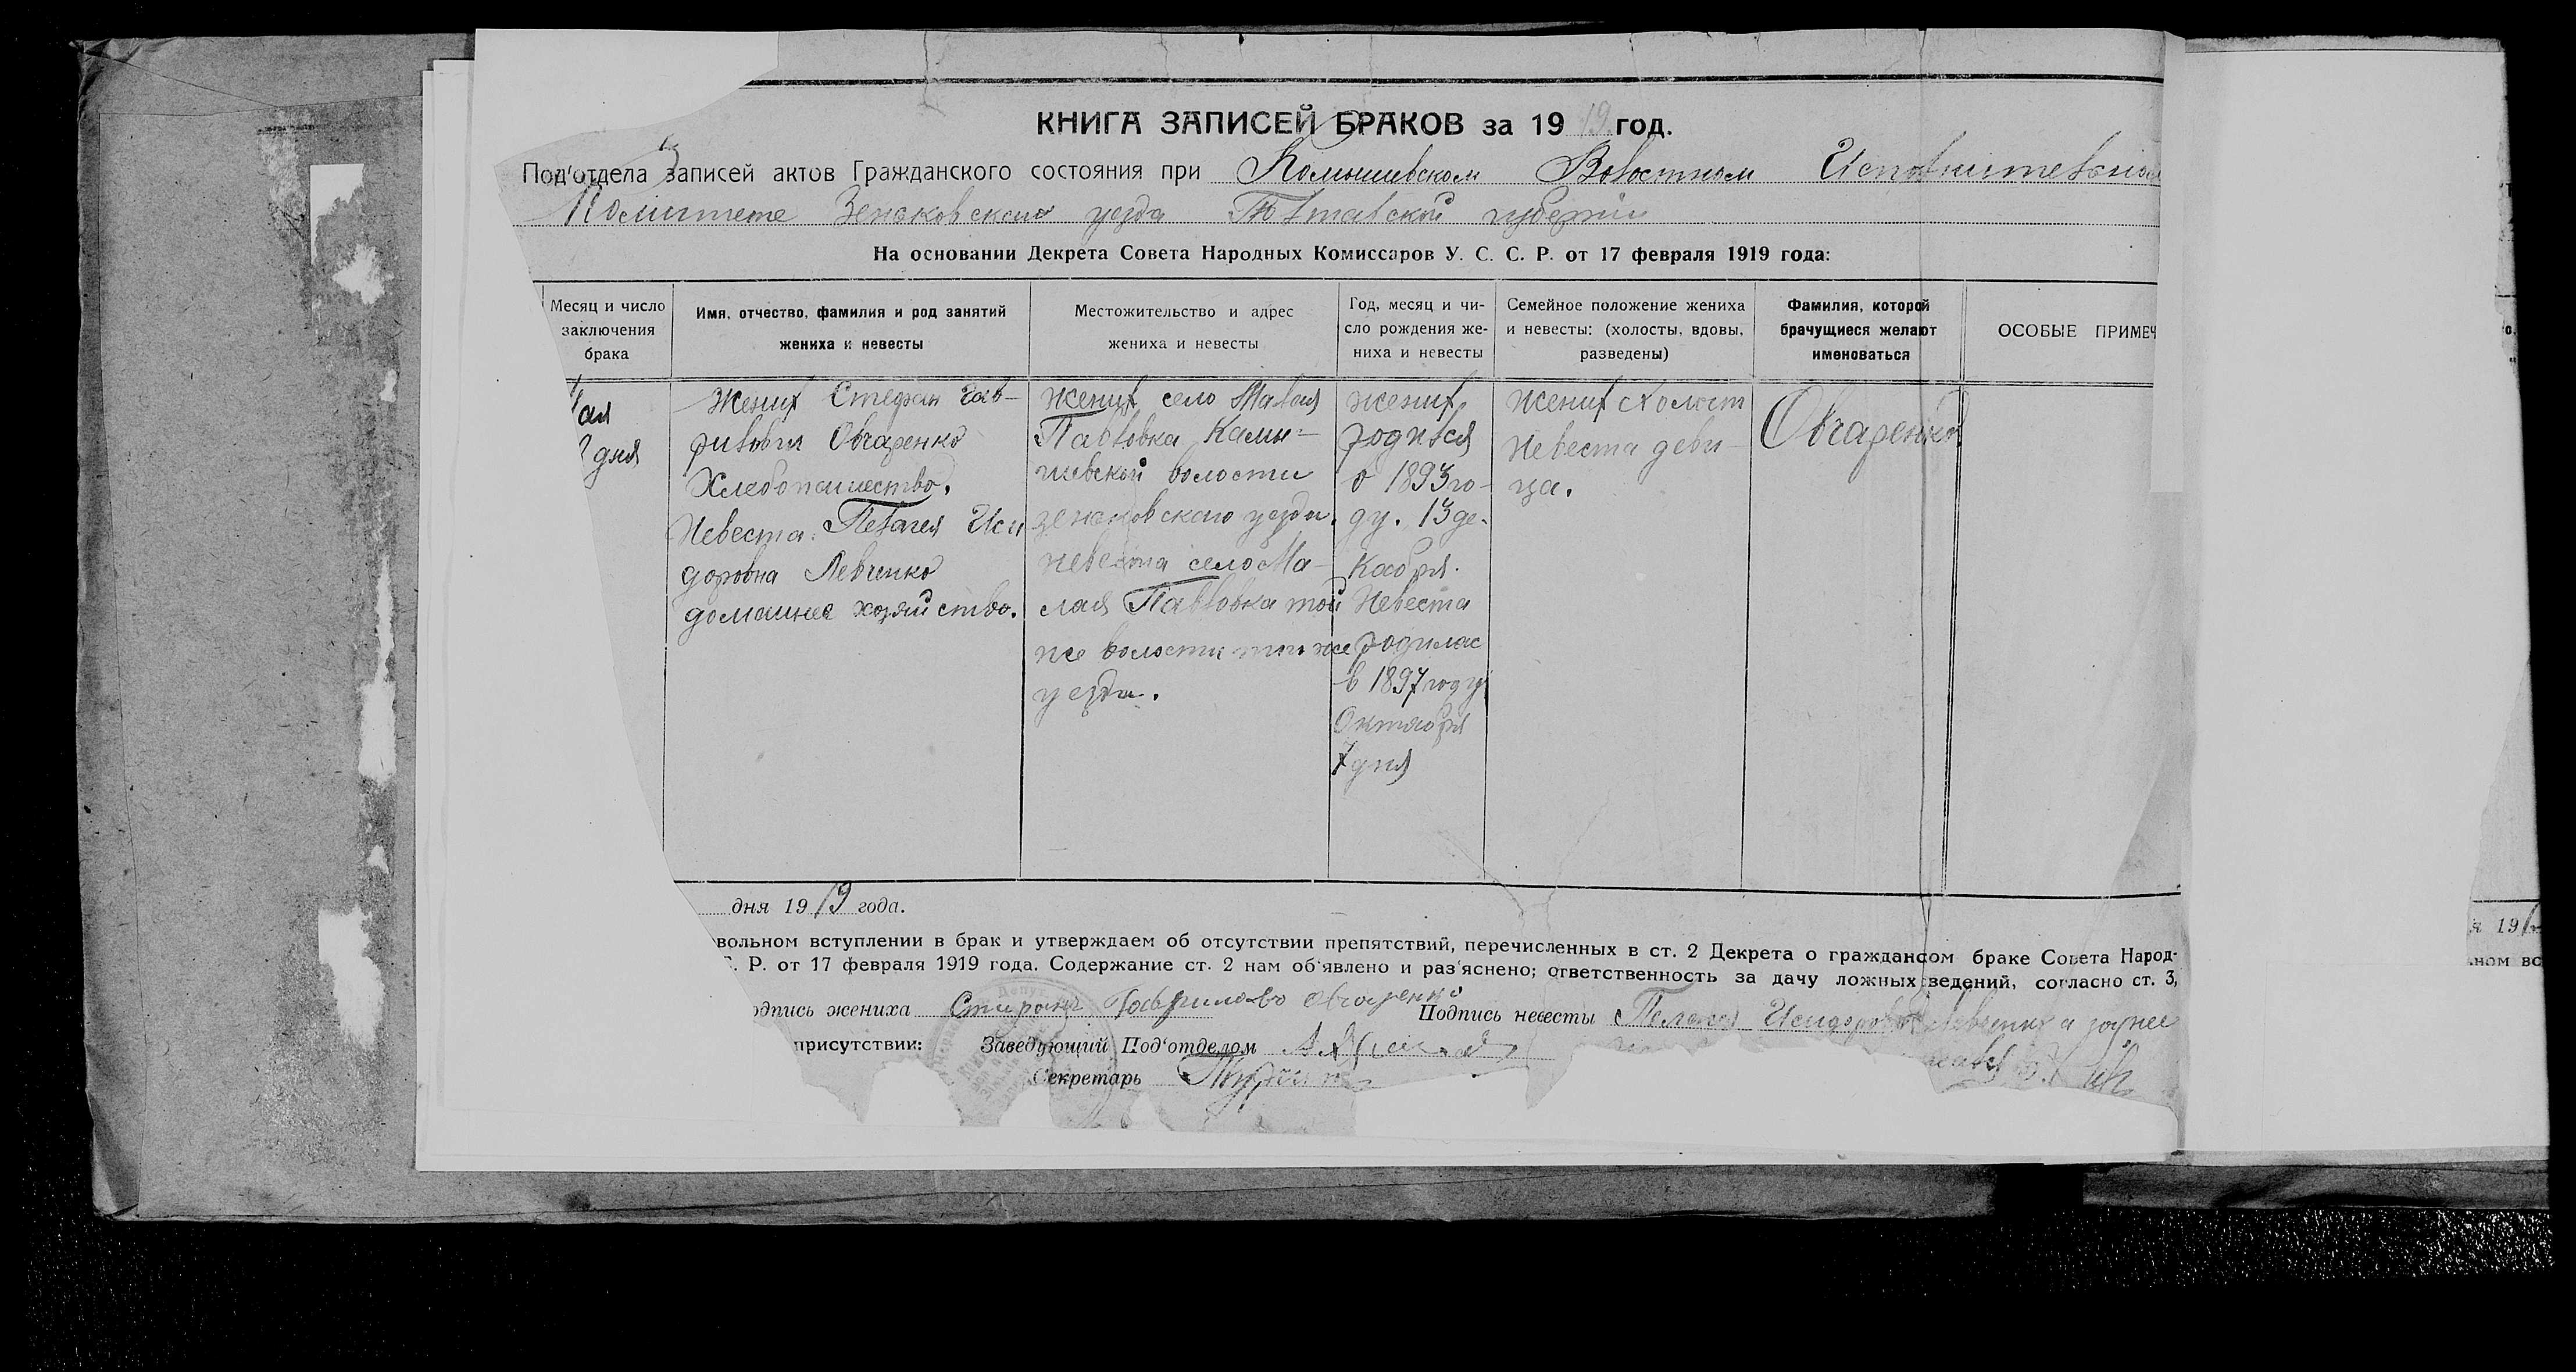 КНИГА ЗАПИСЕЙ БРАКОВ за 1919 год.
Под'отдела записей актов Гражданского состояния при Комышевском Волостном Исполнительном
Комитете Зеньковского уезда Полтавской губернии
На основании Декрета Совета Народных Комиссаров У. С. С. Р. от 17 февраля 1919 года:
Месяц и число
заключения
брака
Имя, отчество, фамилия и род занятий
жениха и невесты
Местожительство и адрес
жениха и невесты
Год, месяц и чи-
сло рождения же-
ниха и невесты
Семейное положение жениха
и невесты: (холосты, вдовы,
разведены)
Фамилия, которой
брачущиеся желают
именоваться
ОСОБЫЕ ПРИМЕЧ
ая
дня
Жених Стефан Гав-
рилович Овчаренко
Хлебопашество.
Невеста Пелагея Иси
доровна Левченко
домашнее хозяйство.
Жених село Малая
Павловка Камы-
шевской волости
зеньковского уезда.
невеста село Ма-
лая Павловка той
же волости того же
уезда.
Жених
родился
в 1893 го-
ду. 13 де-
кабря.
Невеста
родилас
в 1897 году
Октября
7 дня
Жених холост
Невеста деви-
ца.
Овчаренко
дня 1919 года.
вольном вступлении в брак и утверждаем об отсутствии препятствий, перечисленных в ст. 2 Декрета о гражданском браке Совета Народ-
С. Р. от 17 февраля 1919 года. Содержание ст. 2 нам об'явлено и раз'яснено; ответственность за дачу ложных сведений, согласно ст. 3,
одпись жениха Стефанъ Гаврилово Овчаренко Подпись невесты Пелагея Исидоровна Левченко а за нее
присутствии: Заведующий Под'отделом
Секретарь
я 191
ном вс